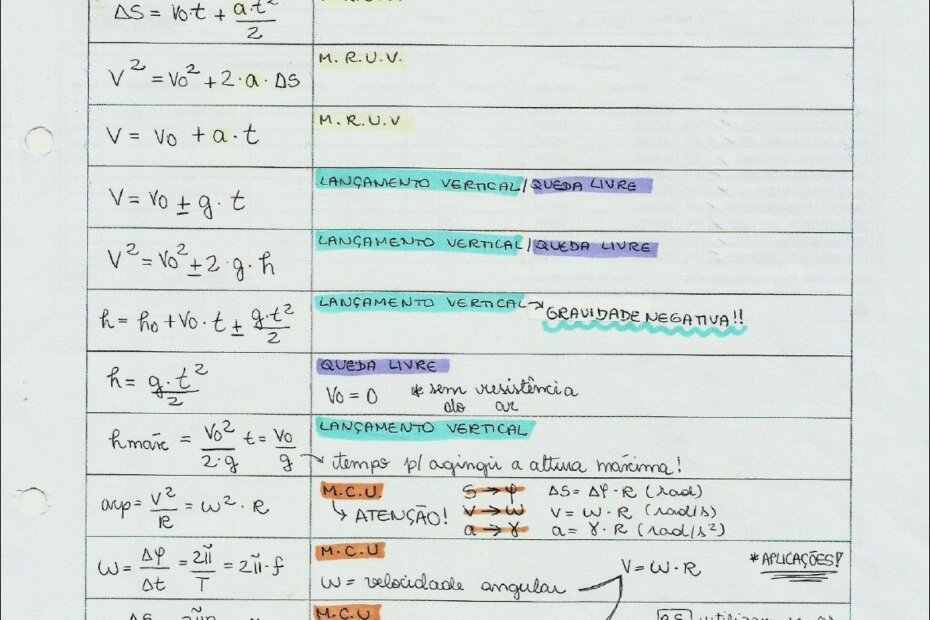 ΔS = V₀·t + a·t²/2
V² = V₀² + 2·a·ΔS
M.R.U.V.
V = V₀ + a·t
M.R.U.V
V = V₀ ± g·t
LANÇAMENTO VERTICAL/QUEDA LIVRE
V² = V₀² ± 2·g·h
LANÇAMENTO VERTICAL/QUEDA LIVRE
h = h₀ + V₀·t ± g·t²/2
LANÇAMENTO VERTICAL → GRAVIDADE NEGATIVA!!
h = g·t²/2
QUEDA LIVRE
V₀ = 0 *sem resistência
do ar
hmáx = V₀²/2·g t = V₀/g
LANÇAMENTO VERTICAL
→ tempo p/ agingir a altura máxima!
acp = V²/R = ω²·R
M.C.U.
↳ ATENÇÃO!
S → φ ΔS = Δφ·R (rad)
V → ω V = ω·R (rad/s)
a → γ a = γ·R (rad/s²)
ω = Δφ/Δt = 2π/T = 2π·f
M.C.U
ω = velocidade angular
V = ω·R
*APLICAÇÕES!
M.C.U